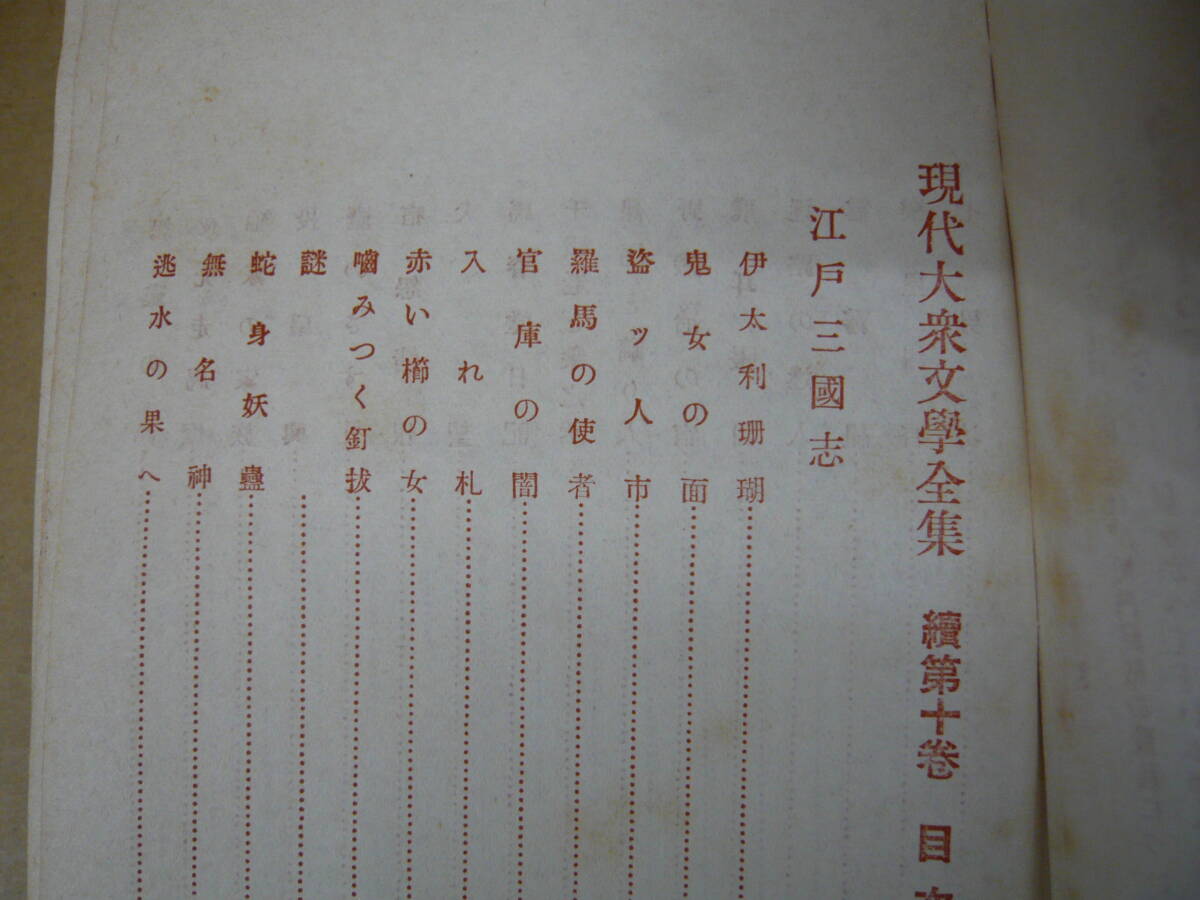 現代大衆文學全集 續第十卷 目次
江戸三國志
伊太利珊瑚
鬼女の面
盜ッ人市
羅馬の使者
官庫の闇
入れ札
赤い櫛の女
嚙みつく釘拔
謎
蛇身妖蠱
無名神
逃水の果へ